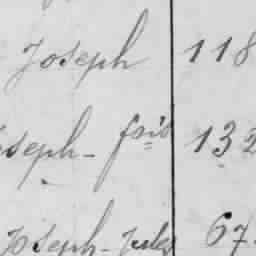 Joseph 118
Joseph - fois 132
Joseph - Jules 67